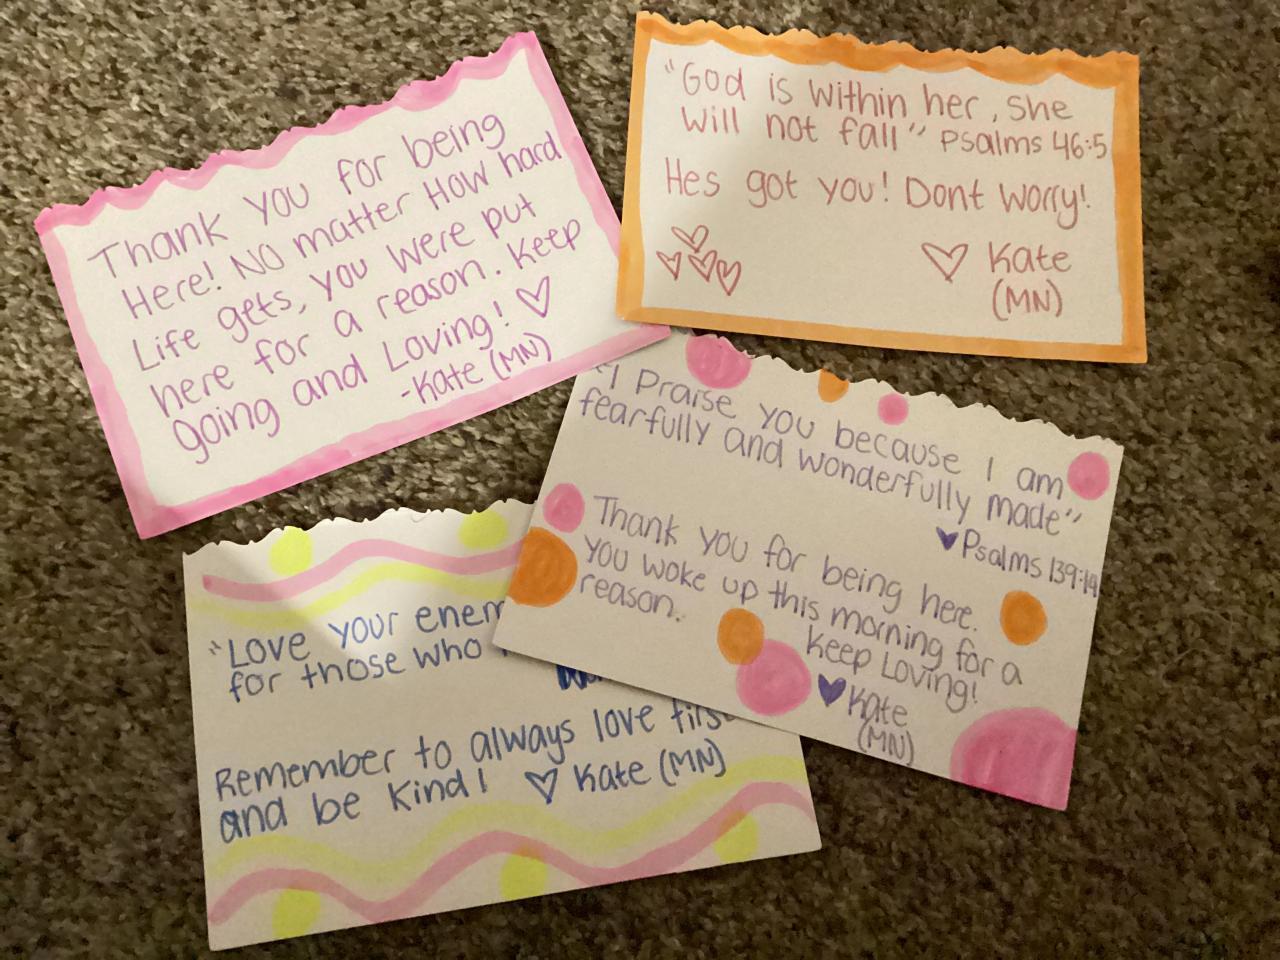 Thank you for being
Here! No matter How hard
Life gets, you were put
here for a reason. Keep
going and Loving! ♡
-Kate (MN)
"God is within her, she
will not fall" Psalms 46:5
Hes got you! Dont worry!
♡ Kate
(MN)
"I Praise you because I am
fearfully and wonderfully made"
♥Psalms 139:14
Thank you for being here.
you woke up this morning for a
reason.
Keep Loving!
♥Kate
(MN)
"Love your enem
for those who
Remember to always love first
and be kind! ♡ Kate (MN)